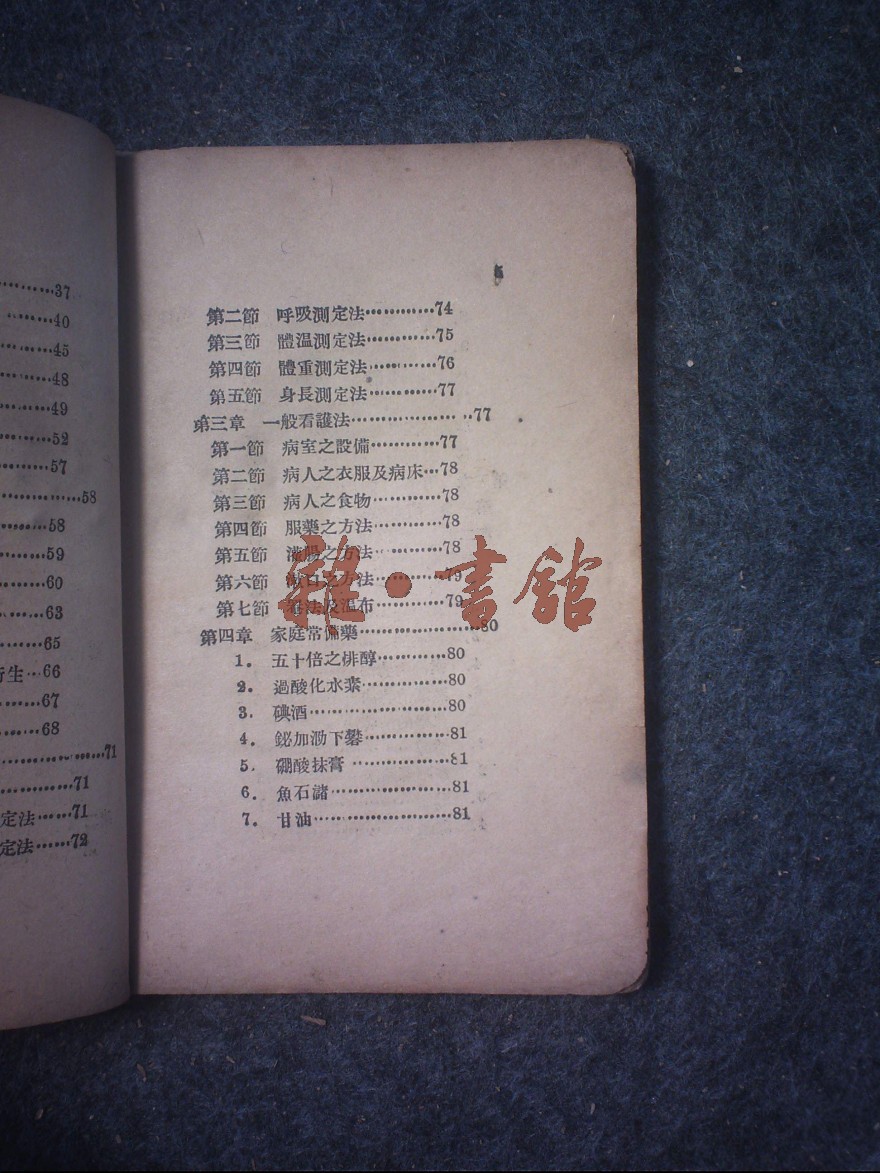 37
40
45
48
49
52
57
58
58
59
60
63
65
生…66
67
68
71
71
定法……71
定法……72
5
第二節 呼吸測定法…………74
第三節 體温測定法…………75
第四節 體重測定法…………76
第五節 身長測定法…………77
第三章 一般看護法…………………77
第一節 病室之設備…………77
第二節 病人之衣服及病床…78
第三節 病人之食物…………78
第四節 服藥之方法…………78
第五節 灌腸之方法…………78
第六節 漱口之方法…………79
第七節 法及温布…………79
第四章 家庭常備藥…………………80
1. 五十倍之排醇…………80
2. 過酸化水素……………80
3. 碘酒……………………80
4. 鉍加泐下礬……………81
5. 硼酸抹膏………………81
6. 魚石諸…………………81
7. 甘油……………………81
雜·書館